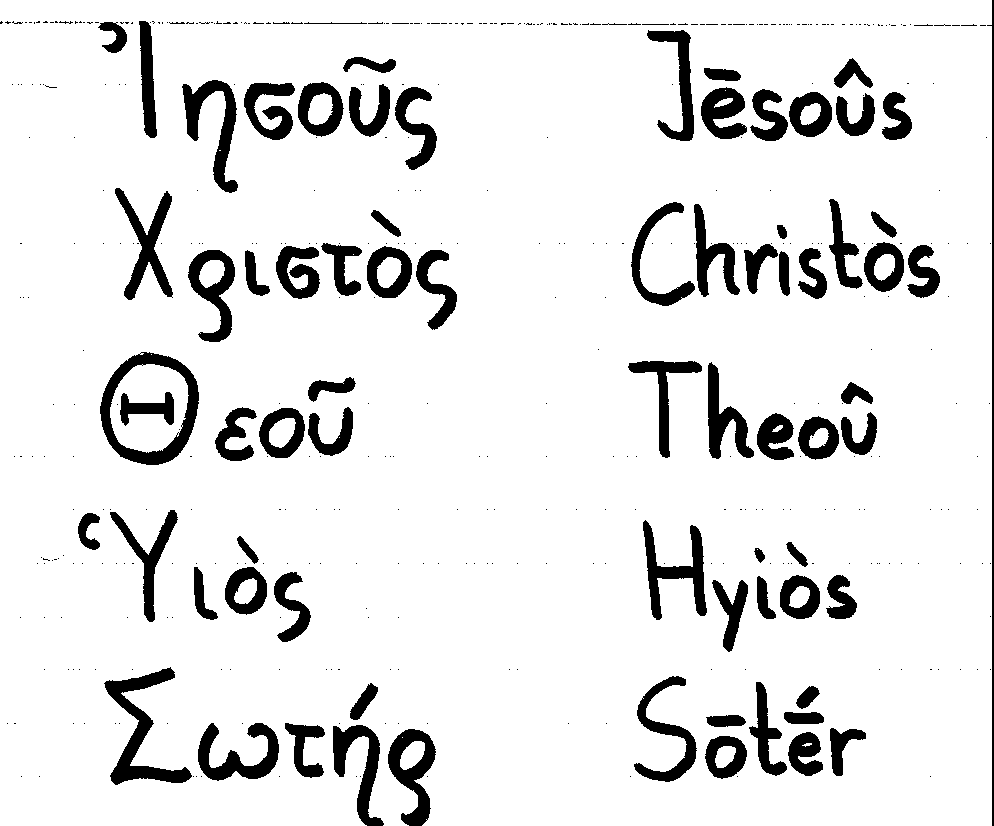 Ἰησοῦς Jēsoûs
Χριστὸς Christòs
Θεοῦ Theoû
Ὑιὸς Hyiòs
Σωτήρ Sōtḗr